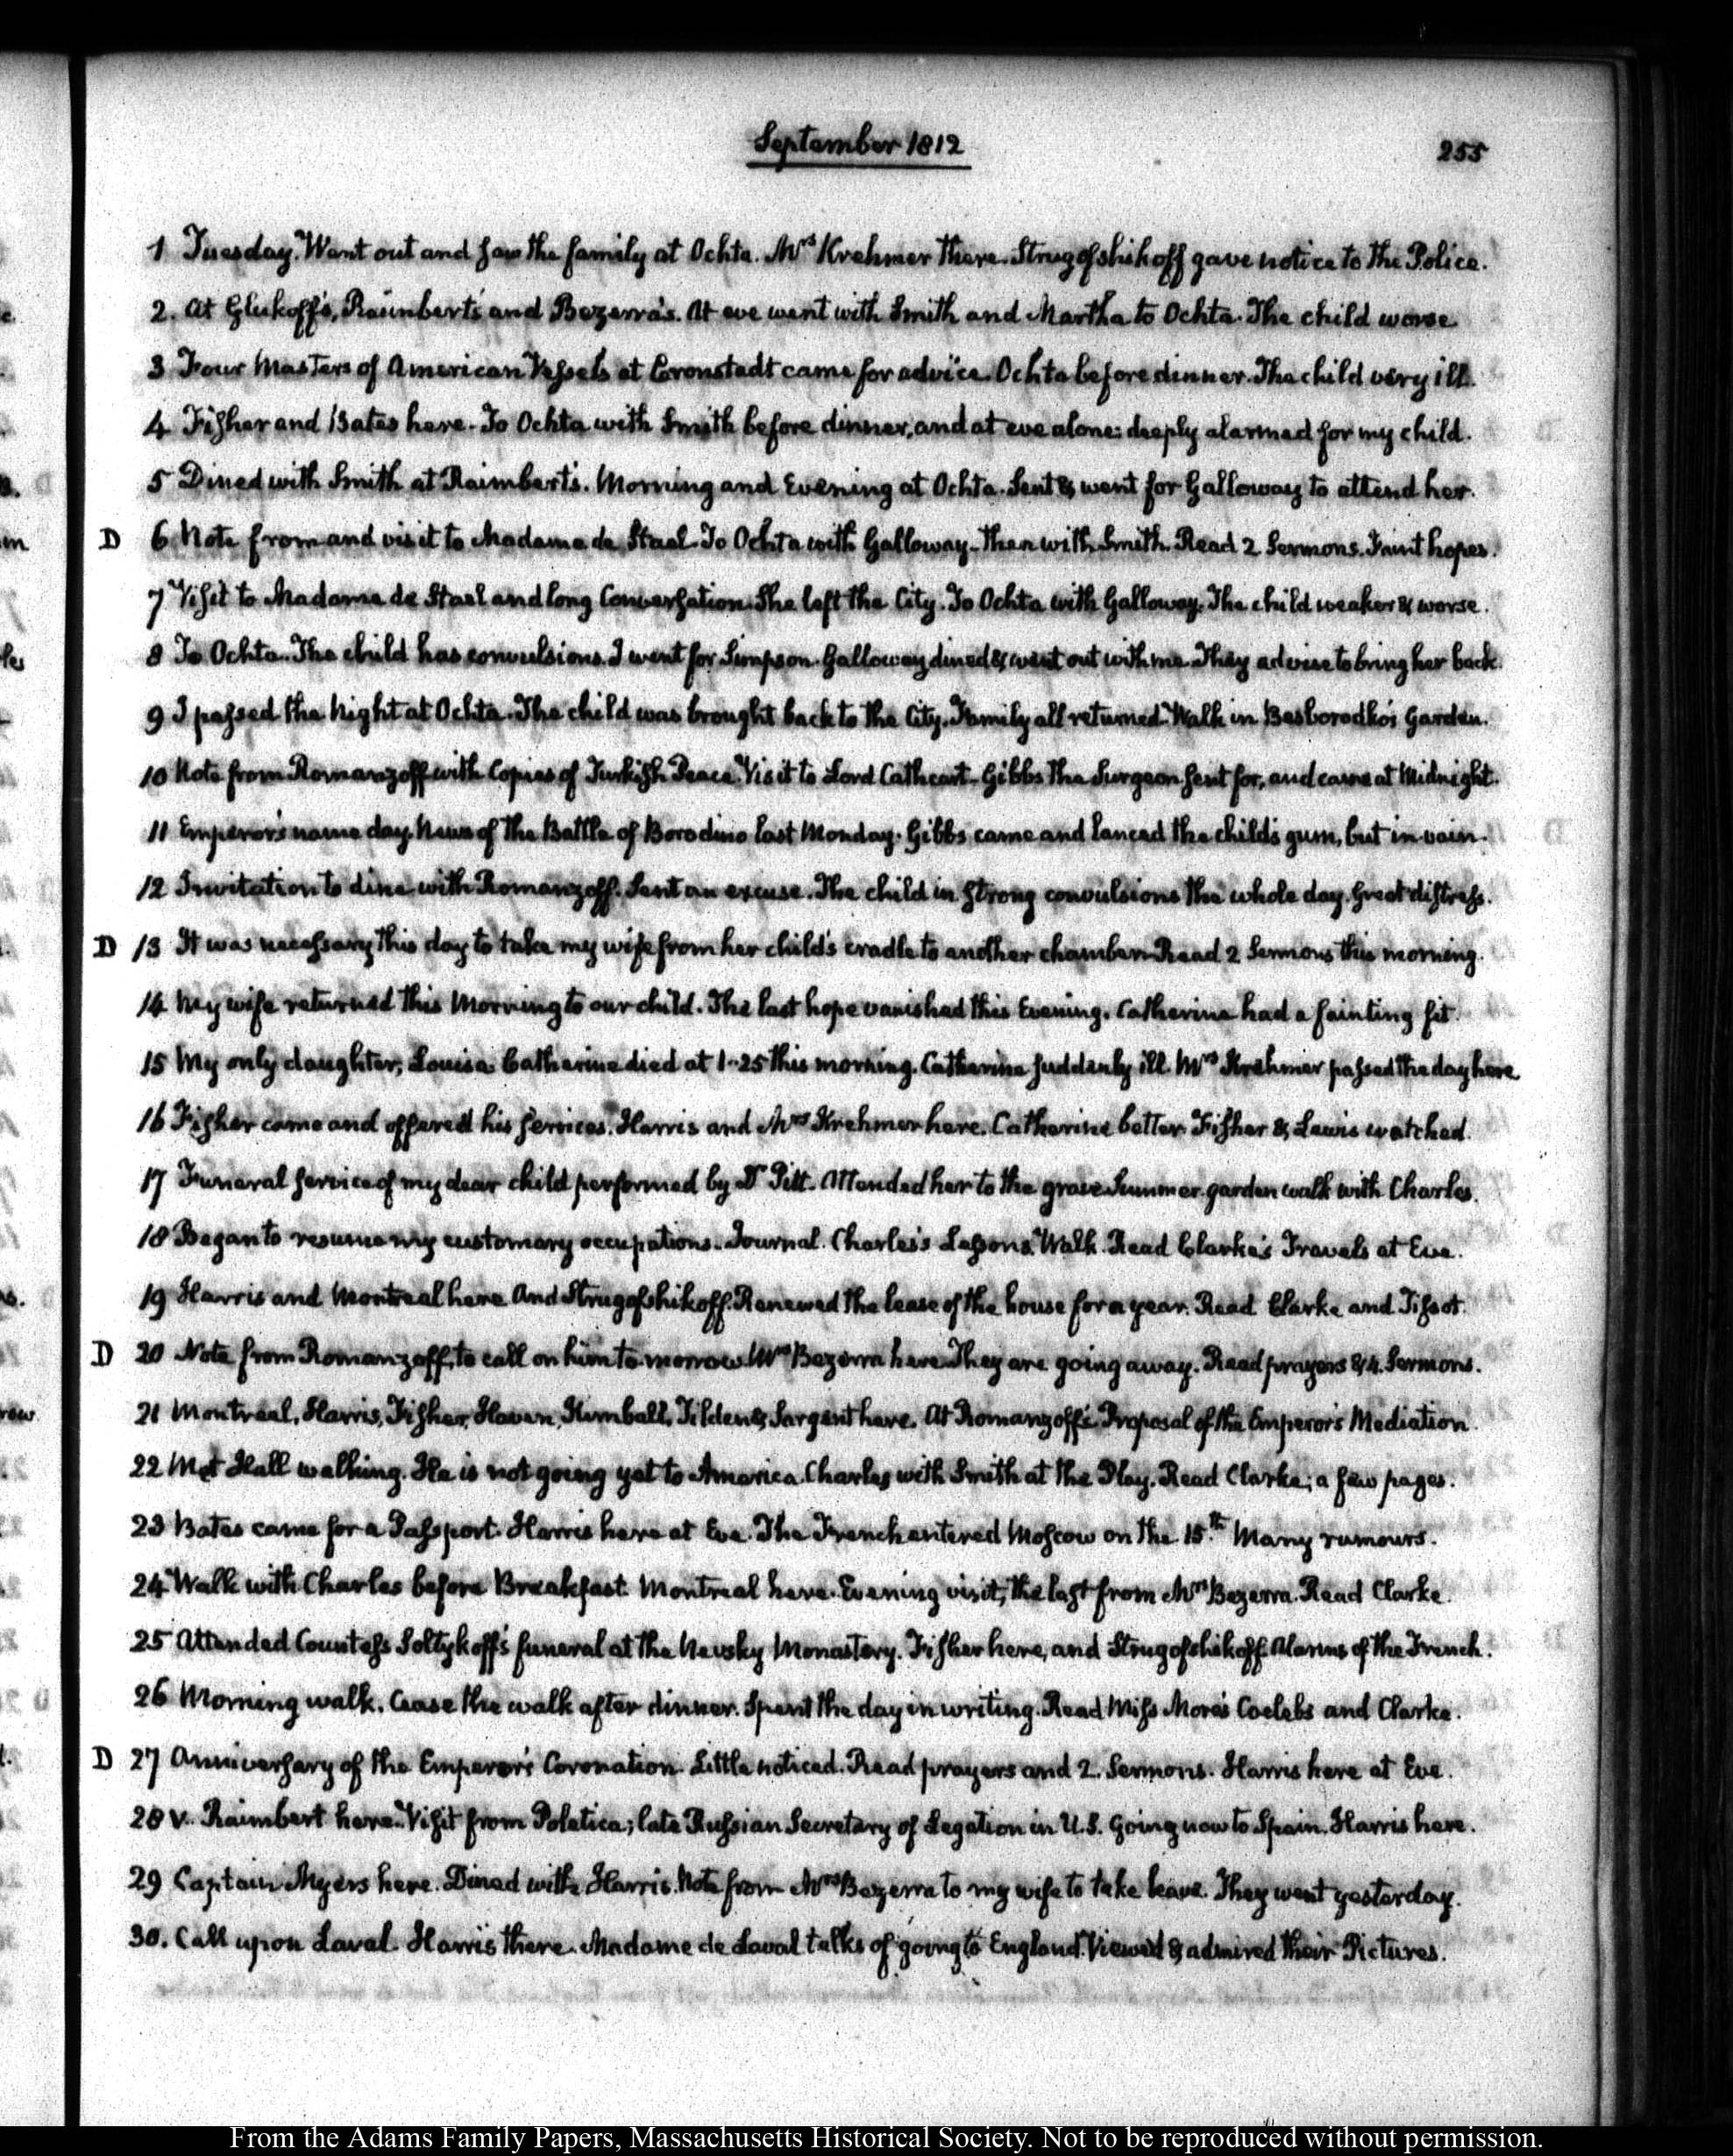 September 1812
255
1 Tuesday. Went out and saw the family at Ochta. Mrs Krehmer there. Strugofshikoff gave notice to the Police.
2. At Glukoff's, Raimbert's and Bezerra's. At eve went with Smith and Martha to Ochta. The child worse
3 Four Masters of American Vessels at Cronstadt came for advice. Ochta before dinner. The child very ill.
4 Fisher and Bates here. To Ochta with Smith before dinner, and at eve alone: deeply alarmed for my child.
5 Dined with Smith at Raimbert's. Morning and Evening at Ochta. Sent & went for Galloway to attend her.
D 6 Note from and visit to Madame de Stael. To Ochta with Galloway—then with Smith. Read 2 Sermons. Faint hopes.
7 Visit to Madame de Stael and long Conversation. She left the City. To Ochta with Galloway. The child weaker & worse.
8 To Ochta. The child has convulsions. I went for Simpson. Galloway dined & went out with me. They advise to bring her back.
9 I passed the Night at Ochta. The child was brought back to the City. Family all returned. Walk in Besborodko's Garden.
10 Note from Romanzoff with Copies of Turkish Peace. Visit to Lord Cathcart—Gibbs the Surgeon sent for, and came at Midnight.
11 Emperor's name day. News of the Battle of Borodino last Monday. Gibbs came and lanced the child's gum, but in vain.
12 Invitation to dine with Romanzoff. Sent an excuse. The child in strong convulsions the whole day. Great distress.
D 13 It was necessary this day to take my wife from her child's cradle to another chamber. Read 2 Sermons this morning.
14 My wife returned this Morning to our child. The last hope vanished this Evening. Catherine had a fainting fit.
15 My only daughter, Louisa Catherine died at 1-25 this morning. Catherine suddenly ill. Mrs Krehmer passed the day here
16 Fisher came and offered his services. Harris and Mrs Krehmer here. Catherine better. Fisher & Lewis watched.
17 Funeral service of my dear child performed by Dr Pitt. Attended her to the grave. Summer garden walk with Charles.
18 Began to resume my customary occupations. Journal. Charles's Lessons. Walk. Read Clarke's Travels at Eve.
19 Harris and Montreal here And Strugofshikoff. Renewed the lease of the house for a year. Read Clarke and Tissot.
D 20 Note from Romanzoff, to call on him to-morrow. Mrs Bezerra here. They are going away. Read prayers & 4. Sermons.
21 Montreal, Harris, Fisher, Haven, Kimball, Tilden & Sargent here. At Romanzoff's. Proposal of the Emperor's Mediation.
22 Met Hall walking. He is not going yet to America. Charles with Smith at the Play. Read Clarke; a few pages.
23 Bates came for a Passport. Harris here at Eve. The French entered Moscow on the 15.th Many rumours.
24 Walk with Charles before Breakfast. Montreal here. Evening visit, the last from Mrs Bezerra. Read Clarke.
25 Attended Countess Soltykoff's funeral at the Nevsky Monastery. Fisher here, and Strugofshikoff. Alarms of the French.
26 Morning walk. Cease the walk after dinner. Spent the day in writing. Read Miss More's Coelebs and Clarke.
D 27 Anniversary of the Emperor's Coronation. Little noticed. Read prayers and 2. Sermons. Harris here at Eve.
28 v. Raimbert here. Visit from Poletica; late Russian Secretary of Legation in U.S. Going now to Spain. Harris here.
29 Captain Myers here. Dined with Harris. Note from Mrs Bezerra to my wife to take leave. They went yesterday.
30. Call upon Laval. Harris there. Madame de Laval talks of going to England. Viewed & admired their Pictures.
From the Adams Family Papers, Massachusetts Historical Society. Not to be reproduced without permission.